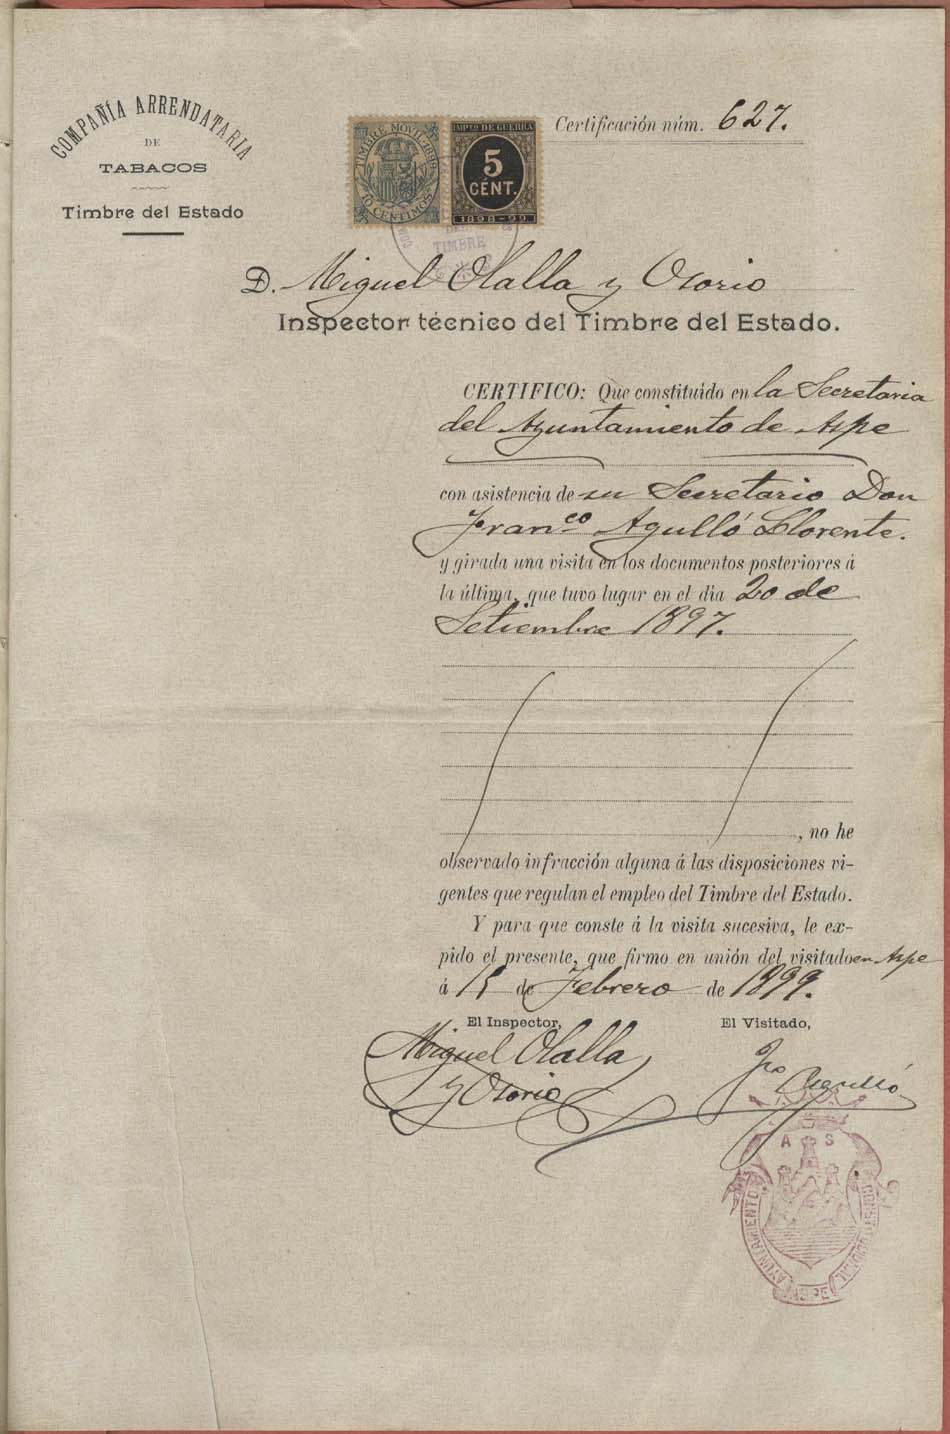 COMPAÑÍA ARRENDATARIA
DE
TABACOS
Timbre del Estado
TIMBRE MOVIL 1899
10 CENTIMOS
IMPTO DE GUERRA
5
CÉNT.
1898-99
TIMBRE
Certificación núm. 627.
D. Miguel Olalla y Osorio
Inspector técnico del Timbre del Estado.
CERTIFICO: Que constituído en la Secretaria
del Ayuntamiento de Aspe
con asistencia de su Secretario Don
Franco Agulló Llorente.
y girada una visita en los documentos posteriores á
la última, que tuvo lugar en el dia 20 de
Setiembre 1897.
, no he
observado infracción alguna á las disposiciones vi-
gentes que regulan el empleo del Timbre del Estado.
Y para que conste á la visita sucesiva, le ex-
pido el presente, que firmo en unión del visitado en Aspe
á 15 de Febrero de 1899.
El Inspector,
El Visitado,
Miguel Olalla
y Osorio
Fco Agulló
A S
AYUNTAMIENTO CONSTITUCIONAL
ASPE